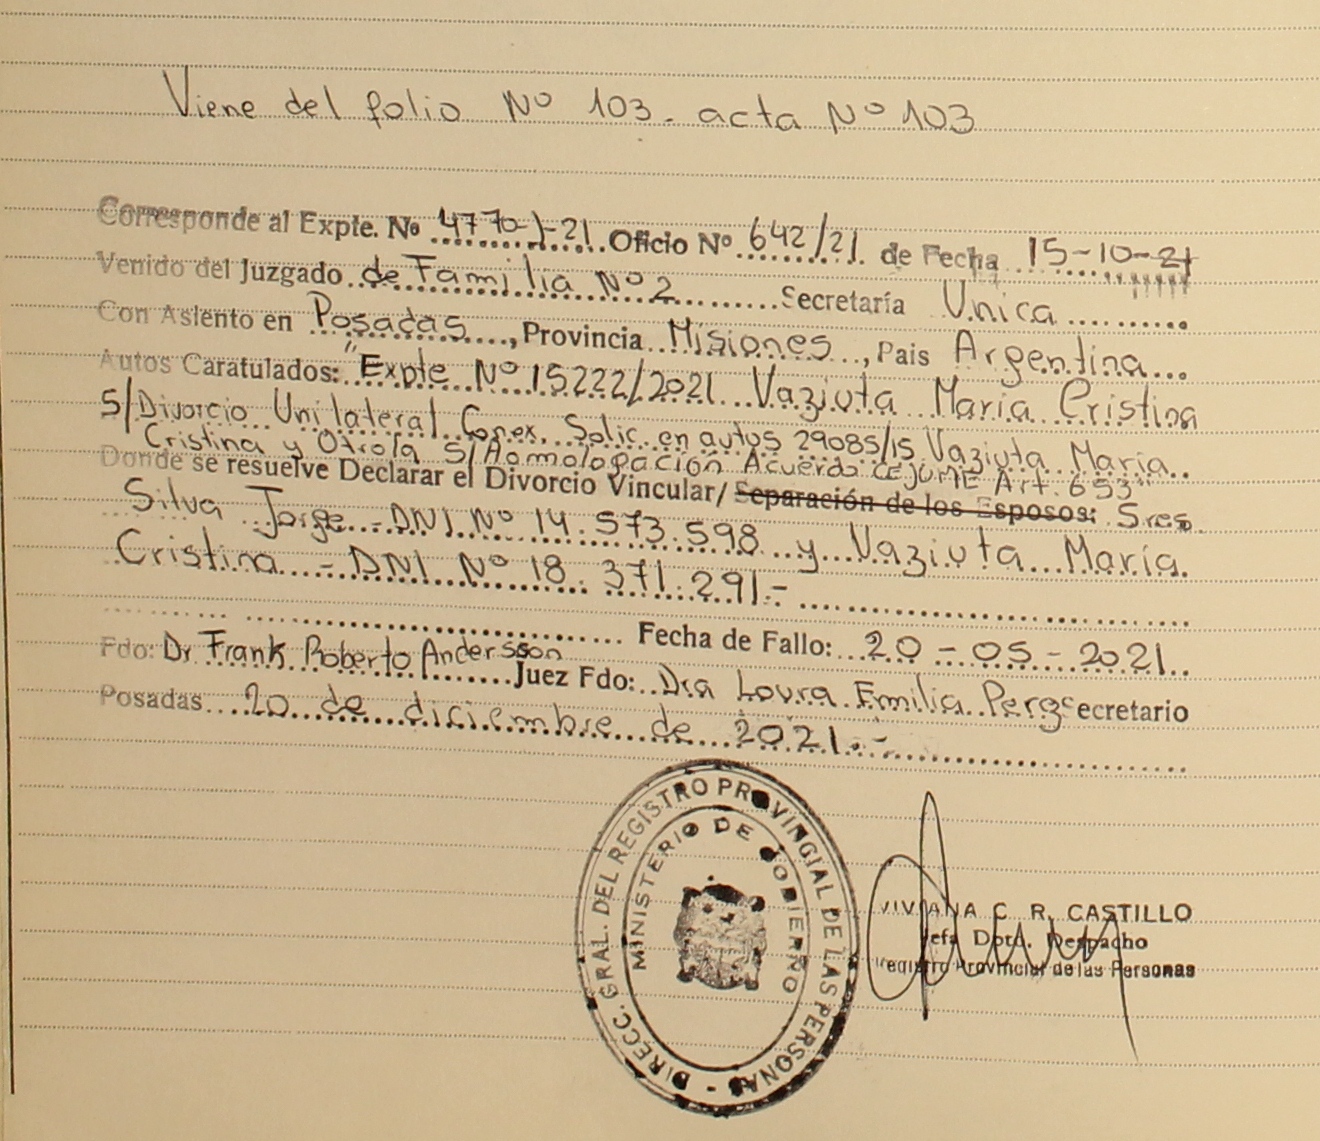 Viene del folio Nº 103. acta Nº 103
Corresponde al Expte. Nº 4770-J-21 Oficio Nº 642/21 de Fecha 15-10-21
Venido del Juzgado de Familia Nº 2 Secretaría Unica
Con Asiento en Posadas, Provincia Misiones, Pais Argentina
Autos Caratulados: "Expte Nº 15222/2021 Vaziuta Maria Cristina
S/Divorcio Unilateral Conex. Solic. en autos 29085/15 Vaziuta Maria
Cristina y Otro/a S/Homologación Acuerdo CEJUME Art. 653"
Donde se resuelve Declarar el Divorcio Vincular/ Separación de los Esposos: Sres.
Silva Jorge - DNI Nº 14.573.598 y Vaziuta María
Cristina - DNI Nº 18.371.291.-
Fecha de Fallo: 20-05-2021
Fdo: Dr Frank Roberto Andersson Juez Fdo: Dra Laura Emilia ecretario
Posadas 20 de diciembre de 2021.-
DIRECC. GRAL. DEL REGISTRO PROVINCIAL DE LAS PERSONAS
MINISTERIO DE GOBIERNO
VIVIANA C. R. CASTILLO
Jefa Dpto. Despacho
Registro Provincial de las Personas